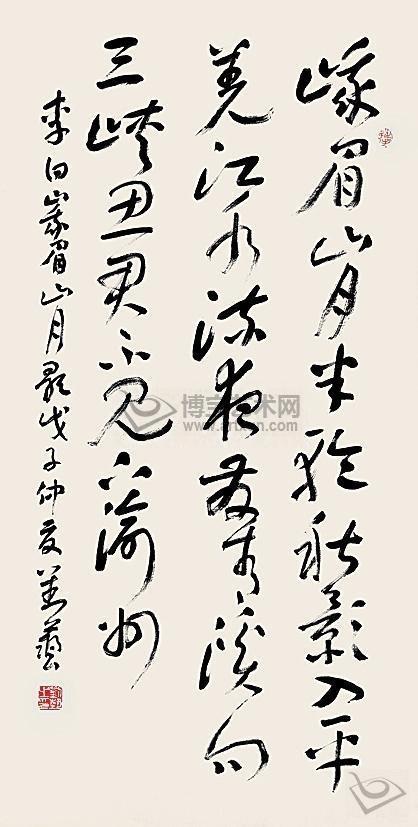 峨眉山月半輪秋影入平
羌江水流夜發清溪向
三峽思君不見下渝州
李白峩眉山月歌戊子仲夏藝
博宝艺术网